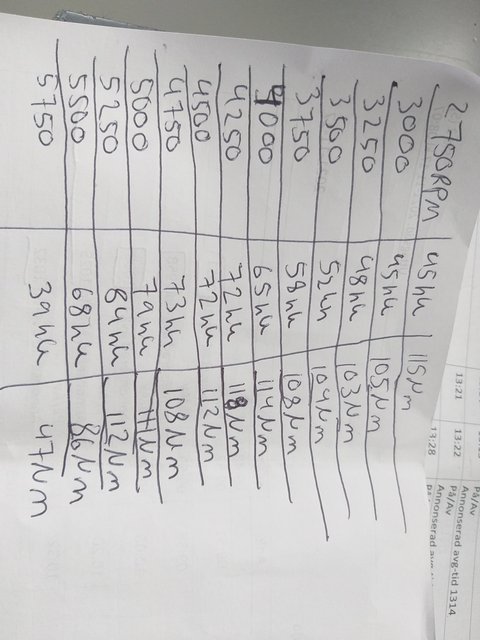 2750RPM 45hk 115Nm
3000 45hk 105Nm
3250 48hk 103Nm
3500 52hk 104Nm
3750 58hk 108Nm
4000 65hk 114Nm
4250 72hk 118Nm
4500 72hk 112Nm
4750 73hk 108Nm
5000 79hk 111Nm
5250 84hk 112Nm
5500 68hk 86Nm
5750 39hk 47Nm
På/Av
Annonserad avg-tid 1314
13:21 13:22 På/Av
13:28 Annonserad